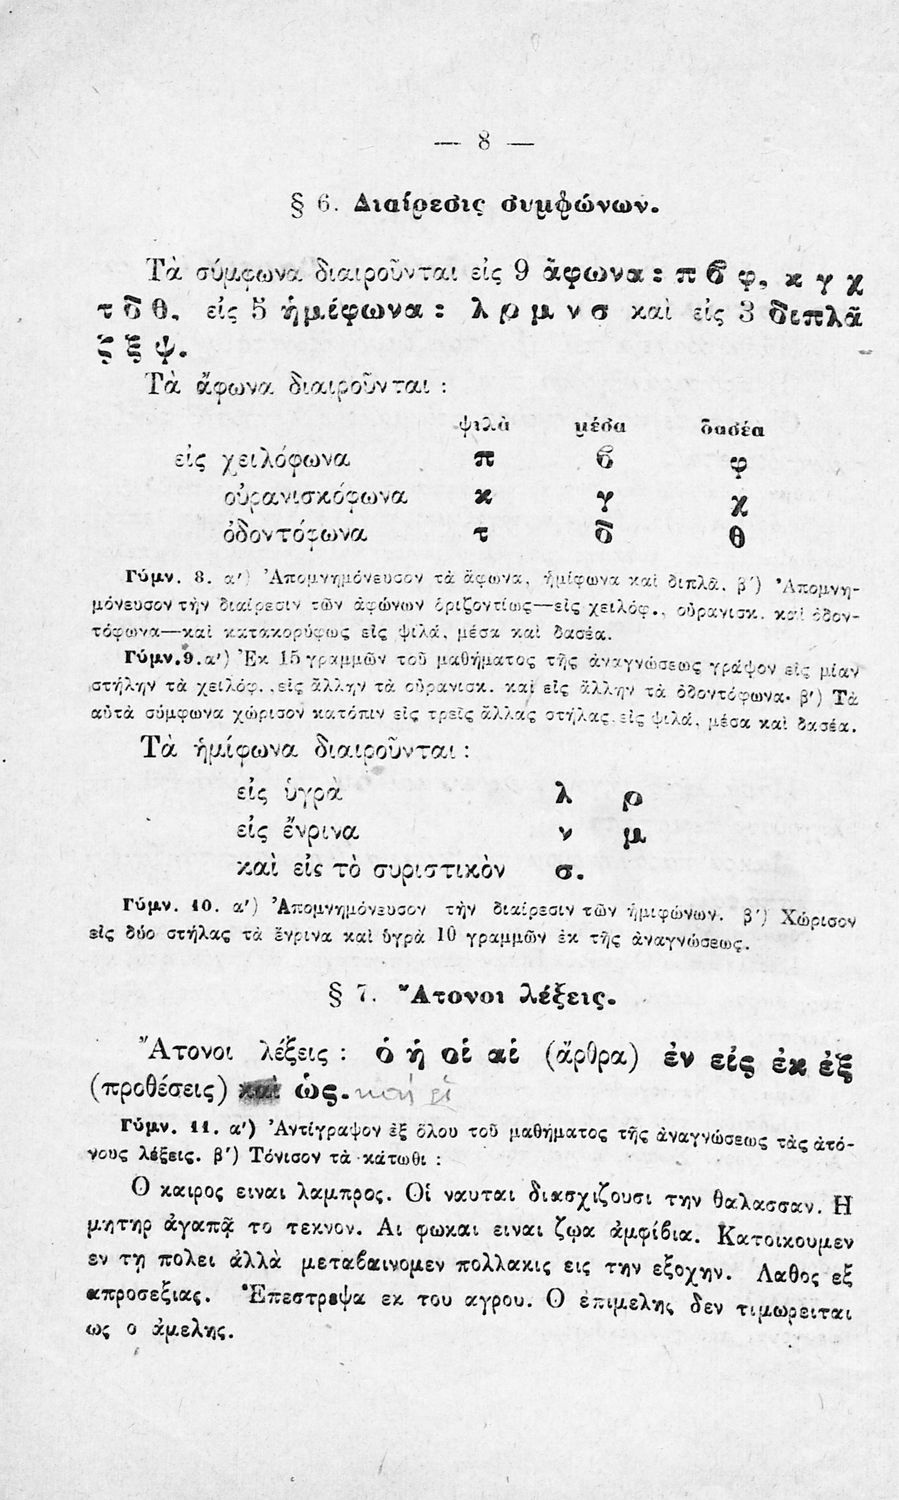 — 8 —
§ 6. Διαίρεσις συμφώνων.
Τὰ σύμφωνα διαιροῦνται εἰς 9 ἄφωνα : π ϐ φ, κ γ χ
τ δ θ, εἰς 5 ἡμίφωνα : λ ρ μ ν σ καὶ εἰς 3 διπλᾶ
ζ ξ ψ.
Τὰ ἄφωνα διαιροῦνται :
ψιλὰ μέσα δασέα
εἰς χειλόφωνα π ϐ φ
οὐρανισκόφωνα κ γ χ
ὀδοντόφωνα τ δ θ
Γύμν. 8. α') Ἀπομνημόνευσον τὰ ἄφωνα, ἡμίφωνα καὶ διπλᾶ. β') Ἀπομνη-
μόνευσον τὴν διαίρεσιν τῶν ἀφώνων ὁριζοντίως—εἰς χειλόφ., οὐρανισκ. καὶ ὀδον-
τόφωνα—καὶ κατακορύφως εἰς ψιλά, μέσα καὶ δασέα.
Γύμν. 9. α') Ἐκ 15 γραμμῶν τοῦ μαθήματος τῆς ἀναγνώσεως γράψον εἰς μίαν
στήλην τὰ χειλόφ., εἰς ἄλλην τὰ οὐρανισκ. καὶ εἰς ἄλλην τὰ ὀδοντόφωνα· β') Τὰ
αὐτὰ σύμφωνα χώρισον κατόπιν εἰς τρεῖς ἄλλας στήλας, εἰς ψιλά, μέσα καὶ δασέα.
Τὰ ἡμίφωνα διαιροῦνται :
εἰς ὑγρὰ λ ρ
εἰς ἔνρινα ν μ
καὶ εἰς τὸ συριστικὸν σ.
Γύμν. 10. α') Ἀπομνημόνευσον τὴν διαίρεσιν τῶν ἡμιφώνων. β') Χώρισον
εἰς δύο στήλας τὰ ἔνρινα καὶ ὑγρὰ 10 γραμμῶν ἐκ τῆς ἀναγνώσεως.
§ 7. Ἄτονοι λέξεις.
Ἄτονοι λέξεις : ὁ ἡ οἱ αἱ (ἄρθρα) ἐν εἰς ἐκ ἐξ
(προθέσεις) καὶ ὡς. καὶ εἰ
Γύμν. 11. α') Ἀντίγραψον ἐξ ὅλου τοῦ μαθήματος τῆς ἀναγνώσεως τὰς ἀτό-
νους λέξεις. β') Τόνισον τὰ κάτωθι :
Ο καιρος ειναι λαμπρος. Οἱ ναυται διασχιζουσι την θαλασσαν. Η
μητηρ ἀγαπᾷ το τεκνον. Αι φωκαι ειναι ζῳα ἀμφίβια. Κατοικουμεν
εν τῃ πολει ἀλλὰ μεταϐαινομεν πολλακις εις την εξοχην. Λαθος εξ
απροσεξιας. Ἐπεστρεψα εκ του αγρου. Ο ἐπιμελης δεν τιμωρειται
ως ο ἀμελης.